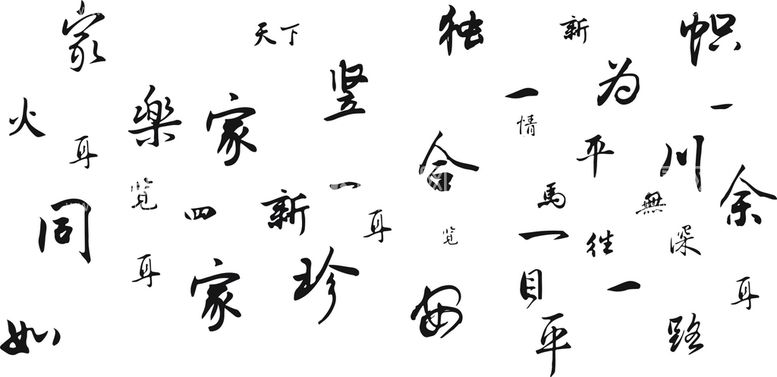 家
天下
独
新
帜
火
樂
家
竖
一
为
一
情
耳
平
川
合
览
四
新
一
耳
馬
無
余
同
览
一
往
深
耳
家
珍
安
目
一
耳
如
平
路